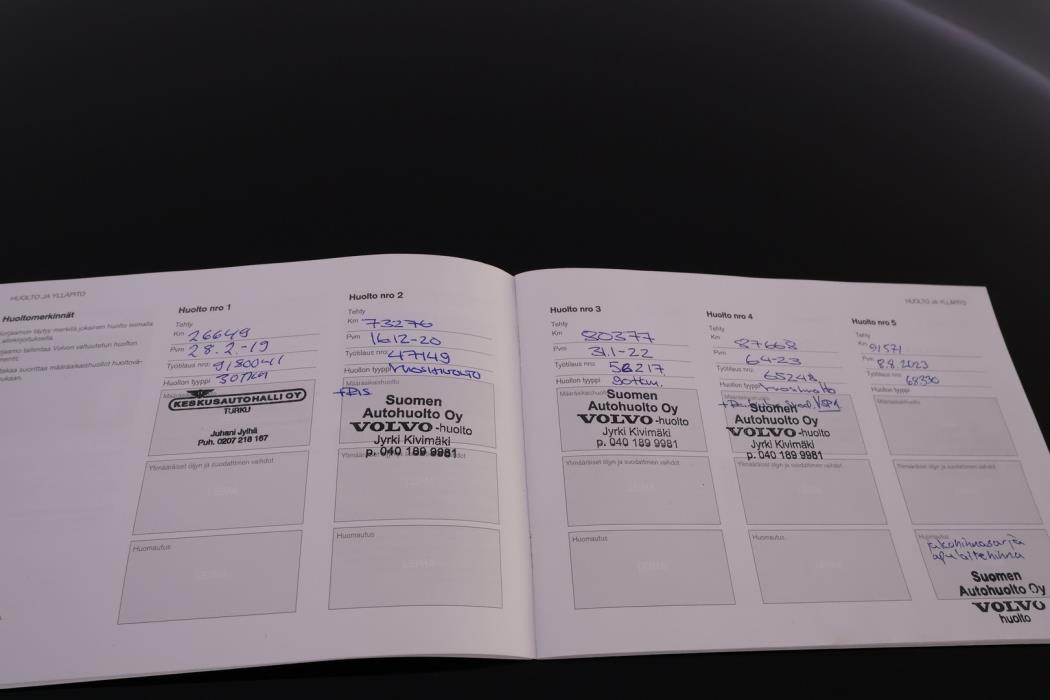 HUOLTO JA YLLÄPITO
Huoltomerkinnät
Huolto nro 1
Tehty
Km 26649
Pvm 28.2.-19
Työtilaus nro:
Huollon tyyppi 30TKM
KESKUSAUTOHALLI OY
TURKU
Juhani Jylhä
Puh. 0207 216 167
Ylimääräiset öljyn ja suodattimen vaihdot
LEIMA
Huomautus
LEIMA
Huolto nro 2
Tehty
Km 73276
Pvm 16.12-20
Työtilaus nro: 47149
Huollon tyyppi VUOSIHUOLTO
Määräaikaishuolto
Suomen
Autohuolto Oy
VOLVO -huolto
Jyrki Kivimäki
p. 040 189 9981
LEIMA
Huomautus
LEIMA
Huolto nro 3
Tehty
Km 80377
Pvm 31.1-22
Työtilaus nro: 56217
Huollon tyyppi 90tkm.
Määräaikaishuolto
Suomen
Autohuolto Oy
VOLVO -huolto
Jyrki Kivimäki
p. 040 189 9981
Ylimääräiset öljyn ja suodattimen vaihdot
LEIMA
Huomautus
LEIMA
HUOLTO JA YLLÄPITO
Huolto nro 4
Tehty
Km 87668
Pvm 6.4-23
Työtilaus nro: 65248
Huollon tyyppi vuosihuolto
Suomen
Autohuolto Oy
VOLVO -huolto
Jyrki Kivimäki
p. 040 189 9981
Ylimääräiset öljyn ja suodattimen vaihdot
Huomautus
Huolto nro 5
Tehty
Km 91571
Pvm 8.8.2023
Työtilaus nro: 68390
Huollon tyyppi
Määräaikaishuolto
Ylimääräiset öljyn ja suodattimen vaihdot
Huomautus
jakohihnasarja
apulaitehihna
Suomen
Autohuolto Oy
VOLVO
huolto